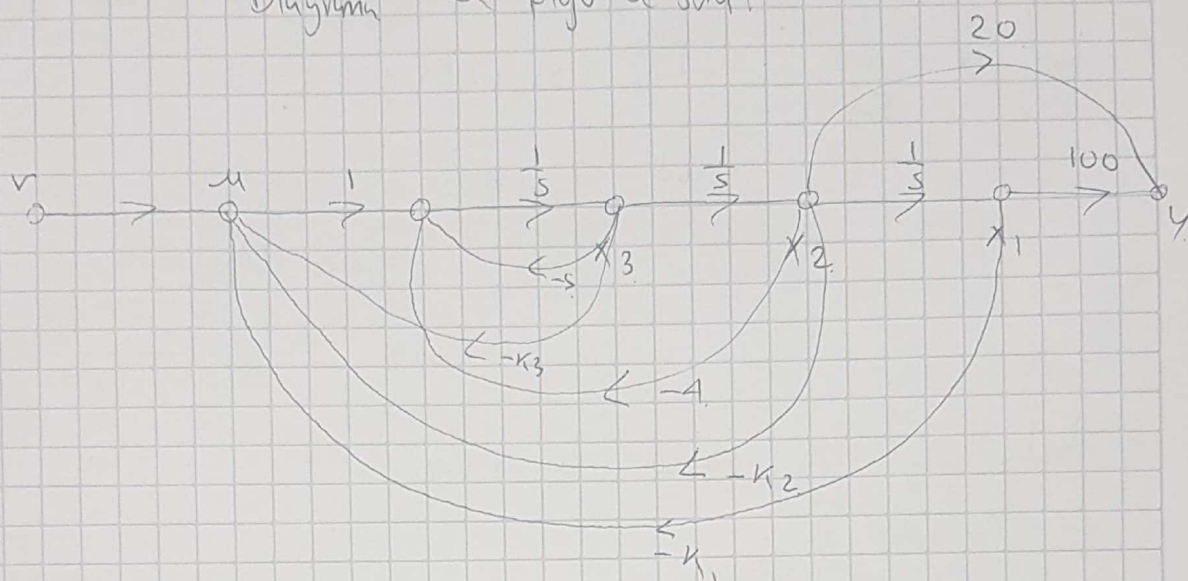 Diagrama
20
r
u
1
1/s
1/s
1/s
100
y
x3
x2
x1
-5
-K3
-4
-K2
-K1